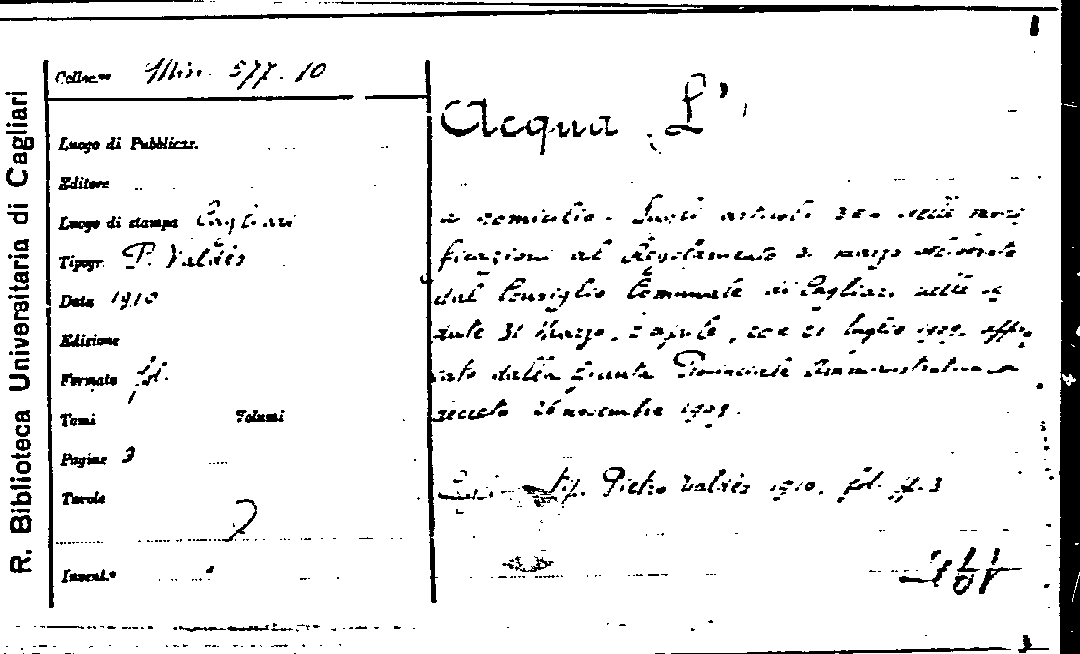 R. Biblioteca Universitaria di Cagliari
Collocne Misc. 577. 10
Luogo di Pubblicaz.
Editore
Luogo di stampa Cagliari
Tipogr. P. Valdès
Data 1910
Edizione
Formato fol.
Tomi Volumi
Pagine 3
Tavole
Invent.º
Acqua L'
a domicilio. Nuovi articoli delle modi
ficazioni al Regolamento marzo
dal Consiglio Comunale di Cagliari nelle se
dute 31 Marzo, 2 aprile, e 21 luglio 1909, appro
vato dalla Giunta Provinciale Amministrativa
decreto 26 novembre 1909.
Tip. Pietro Valdès 1910. fol. ff. 3